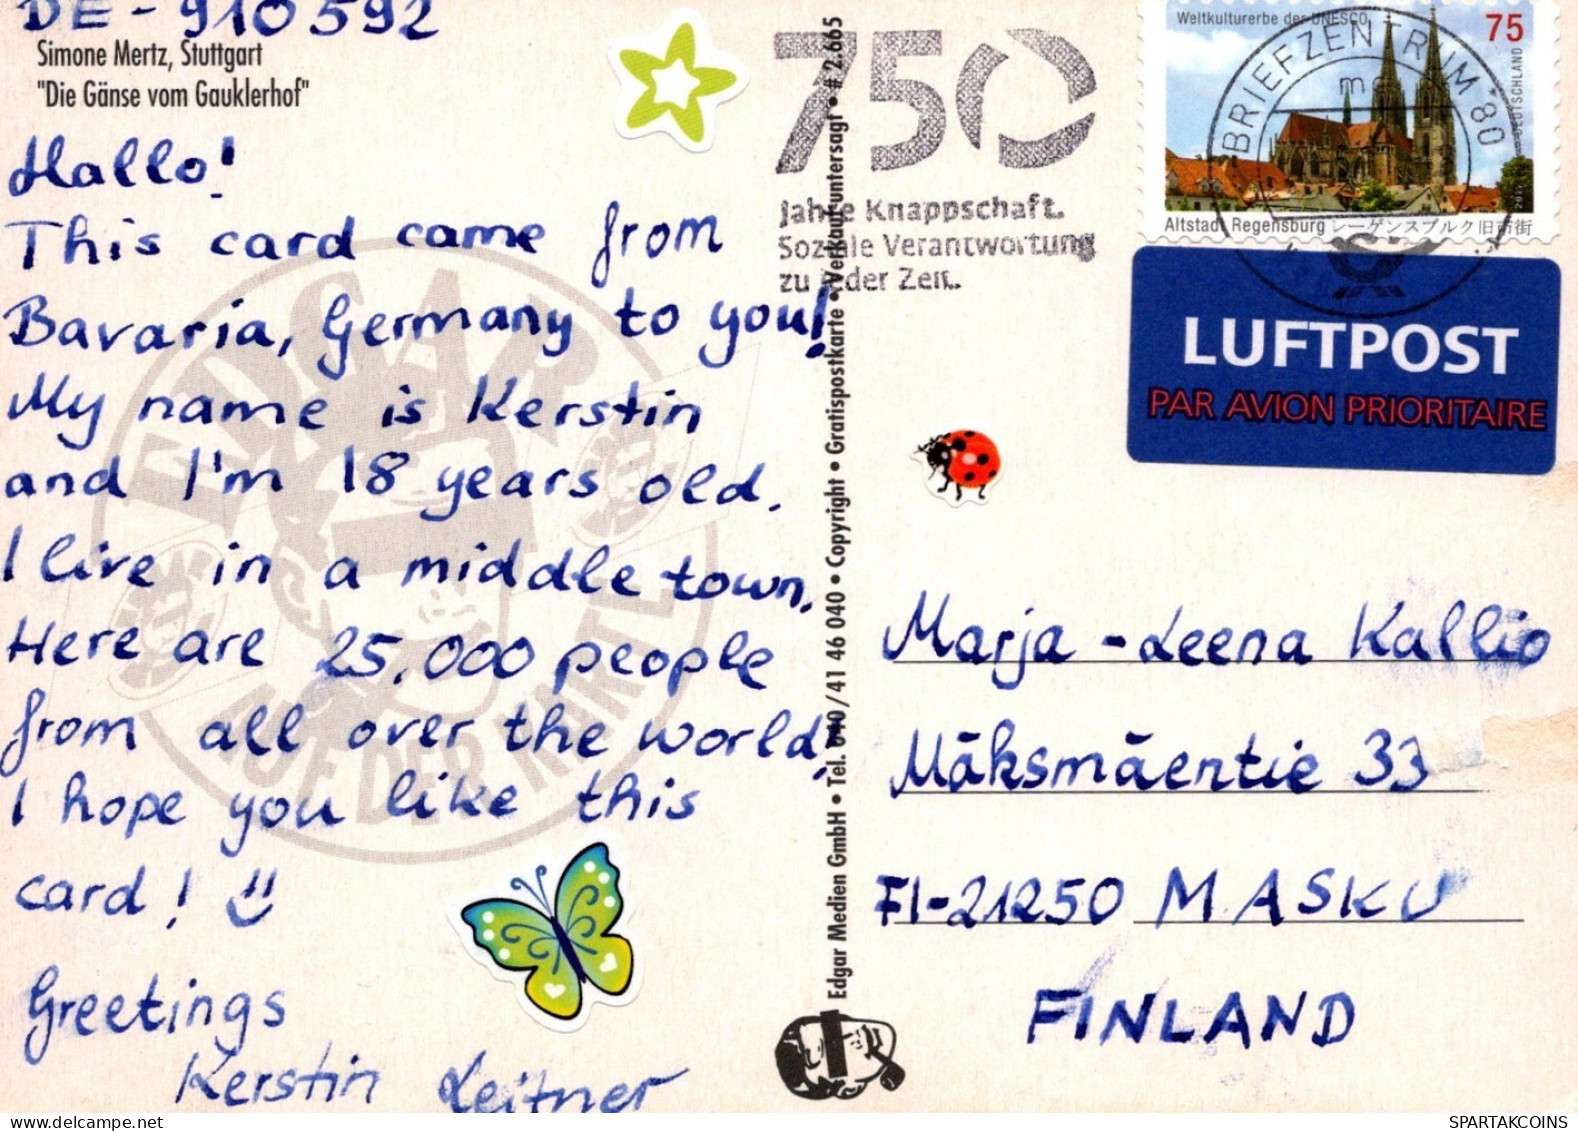 DE-910592
Simone Mertz, Stuttgart
"Die Gänse vom Gauklerhof"
Hallo!
This card came from
Bavaria, Germany to you!
My name is Kerstin
and I'm 18 years old.
I live in a middle town.
Here are 25.000 people
from all over the world!
I hope you like this
card!
Greetings
Kerstin Leitner
EDGAR
AUF DER KARTE
Edgar Medien GmbH • Tel. 040/41 46 040 • Copyright • Gratispostkarte • Verkauf untersagt • # 2.665
750
Jahre Knappschaft.
Soziale Verantwortung
zu jeder Zeit.
Weltkulturerbe der UNESCO
75
DEUTSCHLAND
2012
Altstadt Regensburg レーゲンスブルク旧市街
BRIEFZENTRUM 80
LUFTPOST
PAR AVION PRIORITAIRE
Marja-Leena Kallio
Mäksmäentie 33
FI-21250 MASKU
FINLAND
SPARTAKCOINS